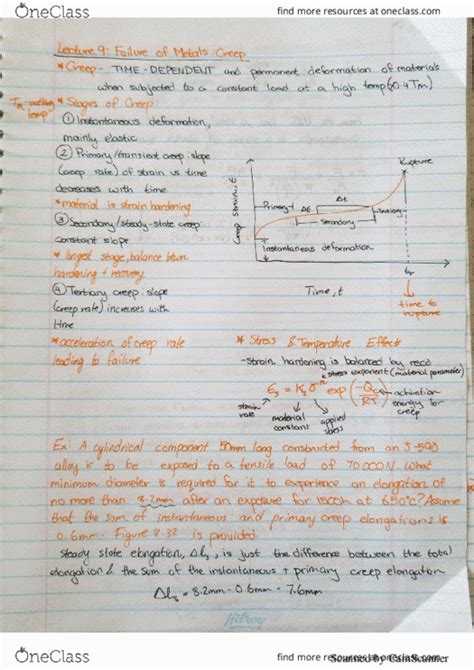 OneClass
find more resources at oneclass.com
Lecture 9: Failure of Metals: Creep
* Creep - TIME-DEPENDENT and permanent deformation of materials
when subjected to a constant load at a high temp (>0.4Tm)
Tm-melting temp
* Stages of Creep:
① Instantaneous deformation,
mainly elastic
② Primary/transient creep: slope
(creep rate) of strain vs time
decreases with time
* material is strain hardening
③ Secondary/steady-state creep:
constant slope
* longest stage, balance btwn
hardening + recovery
④ Tertiary creep: slope
(creep rate) increases with
time
* acceleration of creep rate
leading to failure
Creep strain, ε
Rupture
Primary
Δε
Δt
Secondary
Tertiary
Instantaneous deformation
Time, t
tr
time to
rupture
* Stress & Temperature Effects
-strain hardening is balanced by reco
stress exponent (material parameter)
ε̇s = K2 σ^n exp(-Qc/RT)
activation
energy for
creep
strain
rate
material
constant
applied
stress
Ex: A cylindrical component 50mm long constructed from an S-590
alloy is to be exposed to a tensile load of 70000N. What
minimum diameter is required for it to experience an elongation of
no more than 8.2mm after an exposure for 1500h at 650°C? Assume
that the sum of instantaneous and primary creep elongations is
0.6mm. Figure 8.32 is provided.
Steady state elongation, Δls, is just the difference between the total
elongation & the sum of the instantaneous + primary creep elongation
Δls = 8.2mm - 0.6mm = 7.6mm
Hilroy
OneClass
find more resources at oneclass.com
Scanned by CamScanner